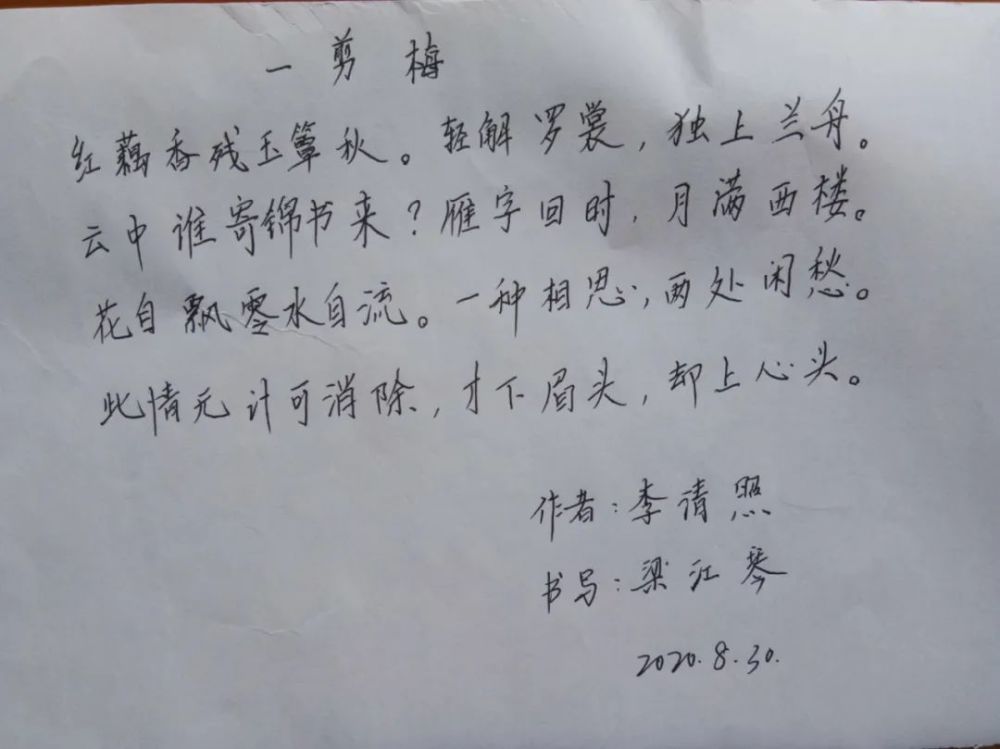 一剪梅
红藕香残玉簟秋。轻解罗裳，独上兰舟。
云中谁寄锦书来？雁字回时，月满西楼。
花自飘零水自流。一种相思，两处闲愁。
此情无计可消除，才下眉头，却上心头。
作者：李清照
书写：梁江琴
2020.8.30.